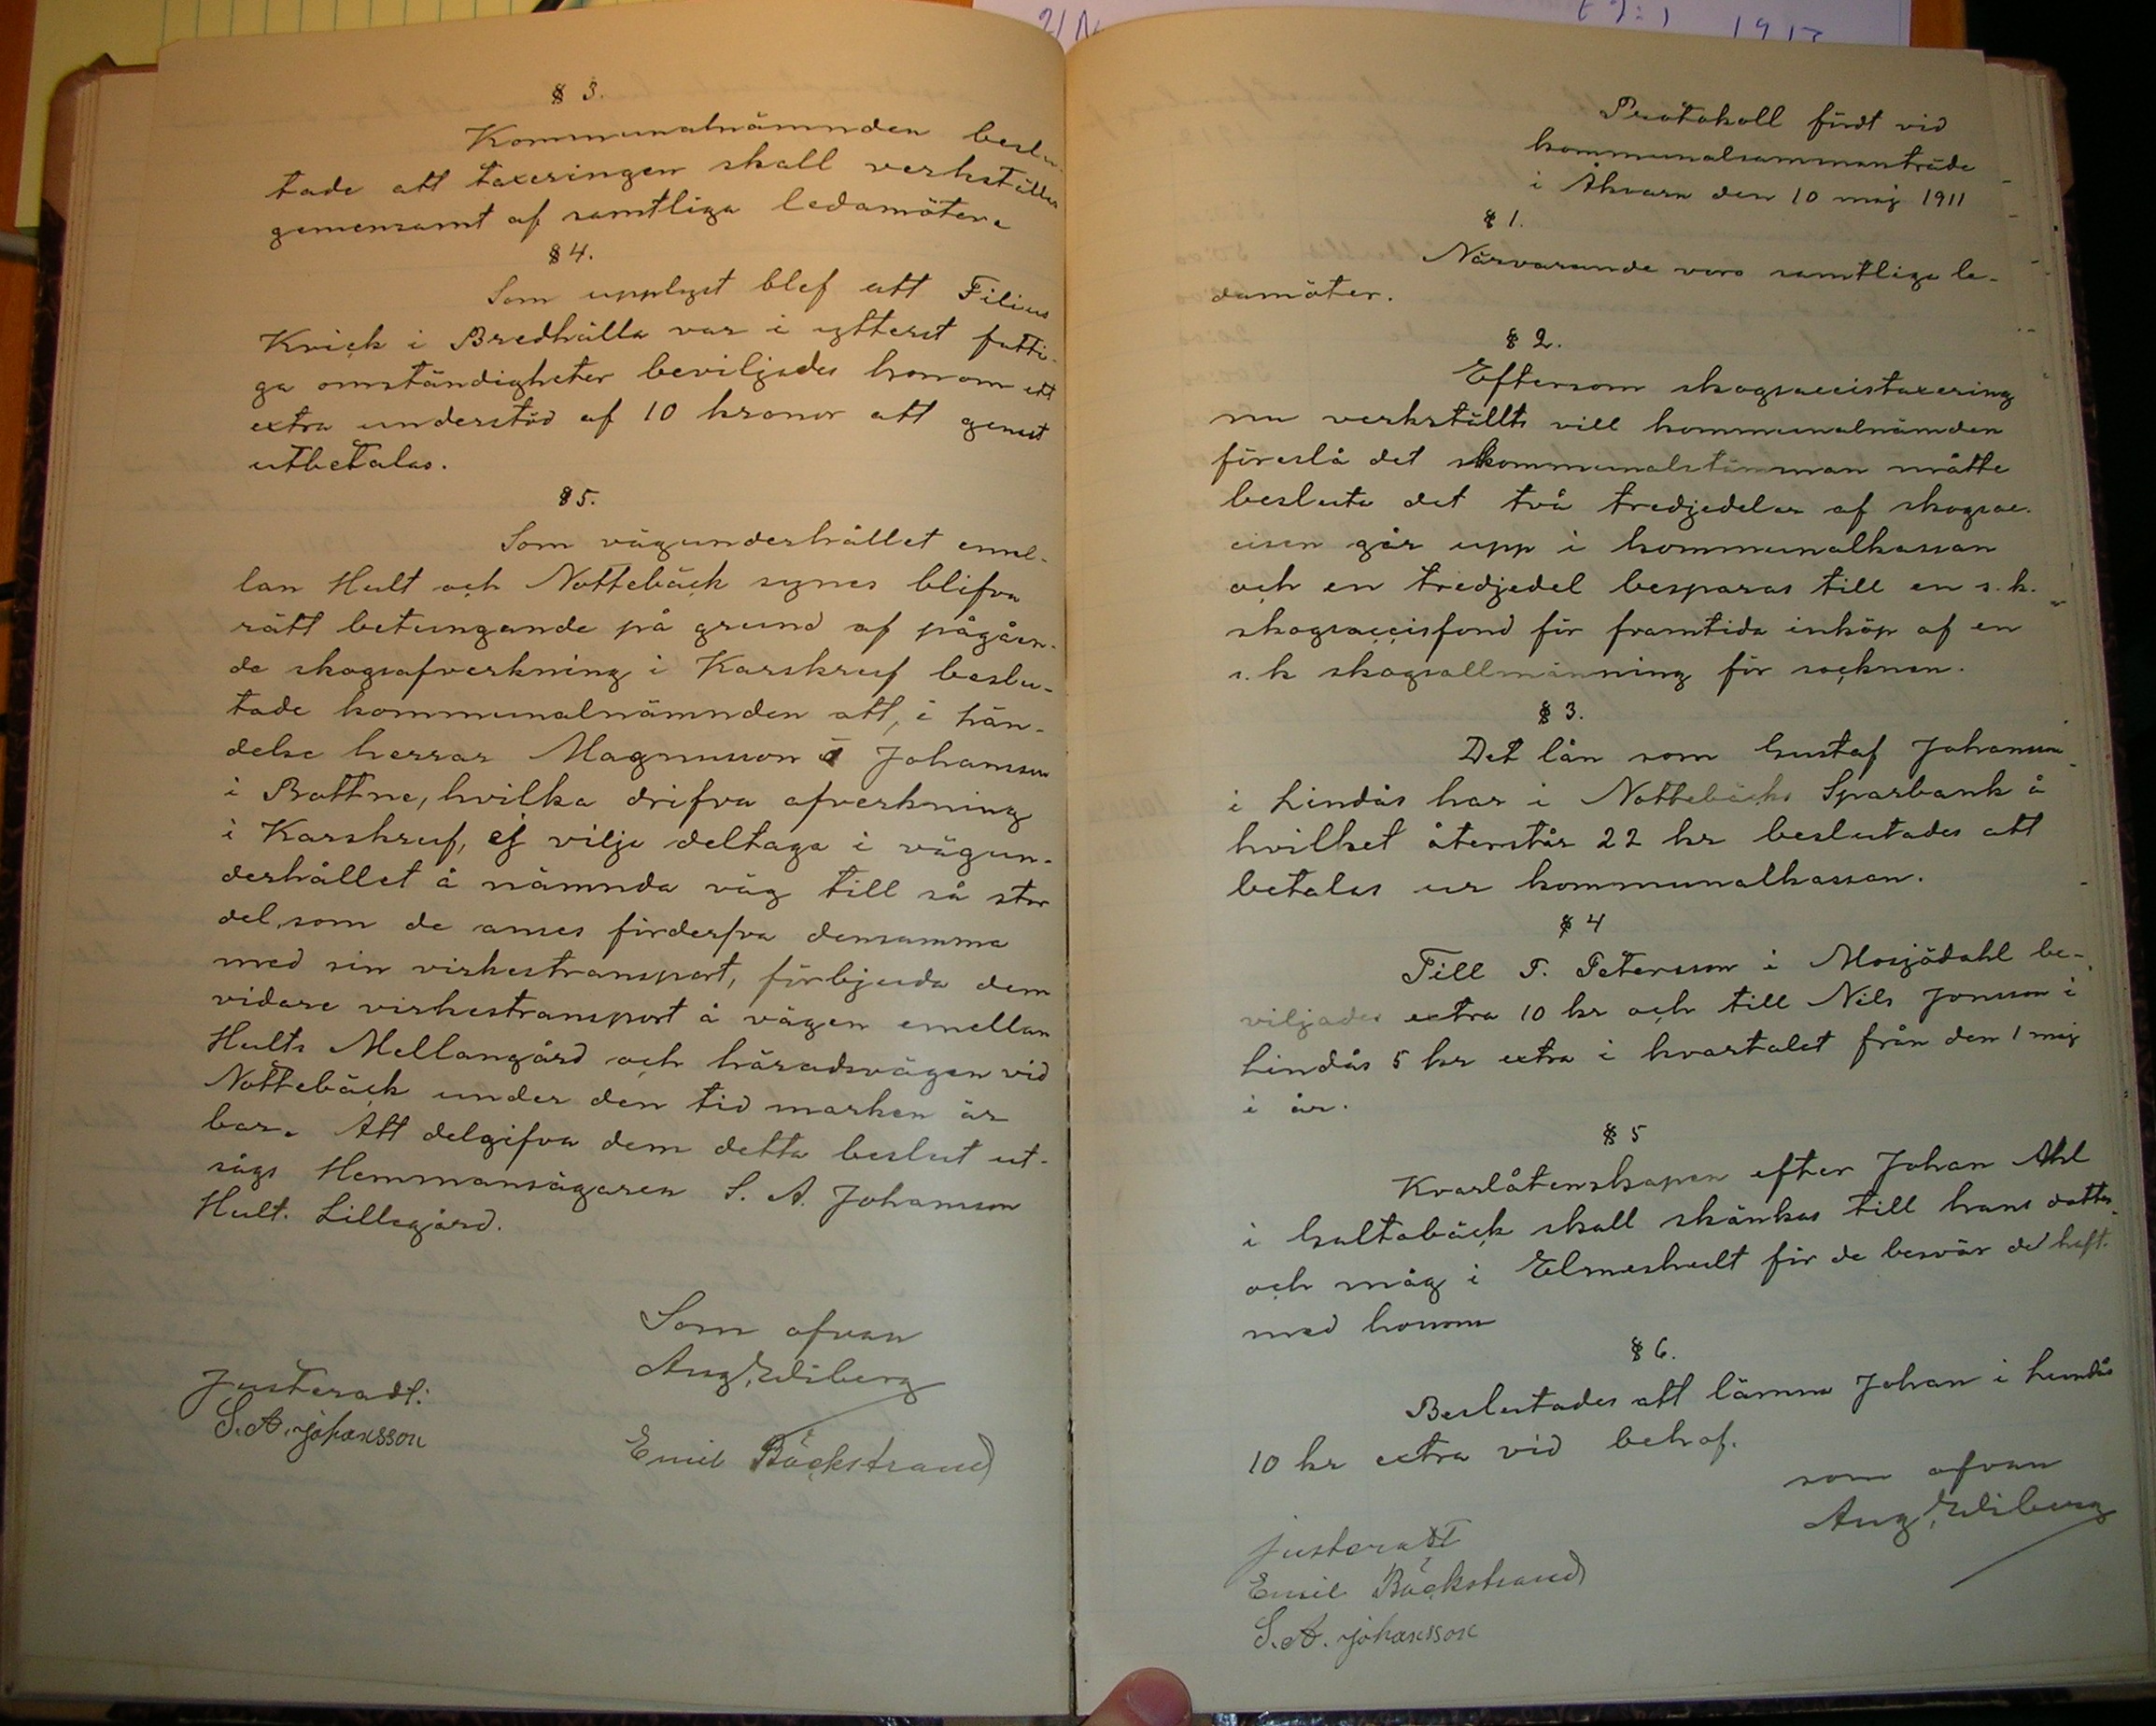 § 3.
Kommunalnämnden beslu-
tade att taxeringen skall verkställas
gemensamt af samtliga ledamöter.
§ 4.
Som upplyst blef att Filius
Krick i Bredhälla var i ytterst fatti-
ga omständigheter beviljades honom ett
extra understöd af 10 kronor att genast
utbetalas.
§ 5.
Som vägunderhållet emel-
lan Hult och Nottebäck synes blifva
rätt betungande på grund af pågåen-
de skogsafverkning i Karskruf beslu-
tade kommunalnämnden att, i hän-
delse herrar Magnusson & Johansson
i Rottne, hvilka drifva afverkning
i Karskruf, ej vilje deltaga i vägun-
derhållet å nämnda väg till så stor
del, som de anses förderfva densamma
med sin virkestransport, förbjuda dem
vidare virkestransport å vägen emellan
Hults Mellangård och häradsvägen vid
Nottebäck under den tid marken är
bar. Att delgifva dem detta beslut ut-
sågs Hemmansägaren S. A. Johansson
Hult. Lillegård.
Som ofvan
Aug. Wiberg
Justeradt:
S. A. Johansson
Emil Bäckstrand
Protokoll fördt vid
kommunalsammanträde
i Åkvarn den 10 maj 1911
§ 1.
Närvarande voro samtliga le-
damöter.
§ 2.
Eftersom skogsaccistaxering
nu verkställts vill kommunalnämden
föreslå det kommunalstämman måtte
besluta det två tredjedelar af skogsac-
cisen går upp i kommunalkassan
och en tredjedel besparas till en s. k.
skogsaccisfond för framtida inköp af en
s. k skogsallmänning för socknen.
§ 3.
Det lån som Gustaf Johansson
i Lindås har i Nottebäcks Sparbank å
hvilket återstår 22 kr beslutades att
betalas ur kommunalkassan.
§ 4
Till P. Petersson i Mosjödahl be-
viljades extra 10 kr och till Nils Jonsson i
Lindås 5 kr extra i kvartalet från den 1 maj
i år.
§ 5
Kvarlåtenskapen efter Johan Ahl
i Galtabäck skall skänkas till hans dotter
och måg i Elmeshult för de besvär de haft.
med honom
§ 6.
Beslutades att lämna Johan i
10 kr extra vid behof.
som ofvan
Aug. Wiberg
justerat
Emil Bäckstrand
S. A. Johansson